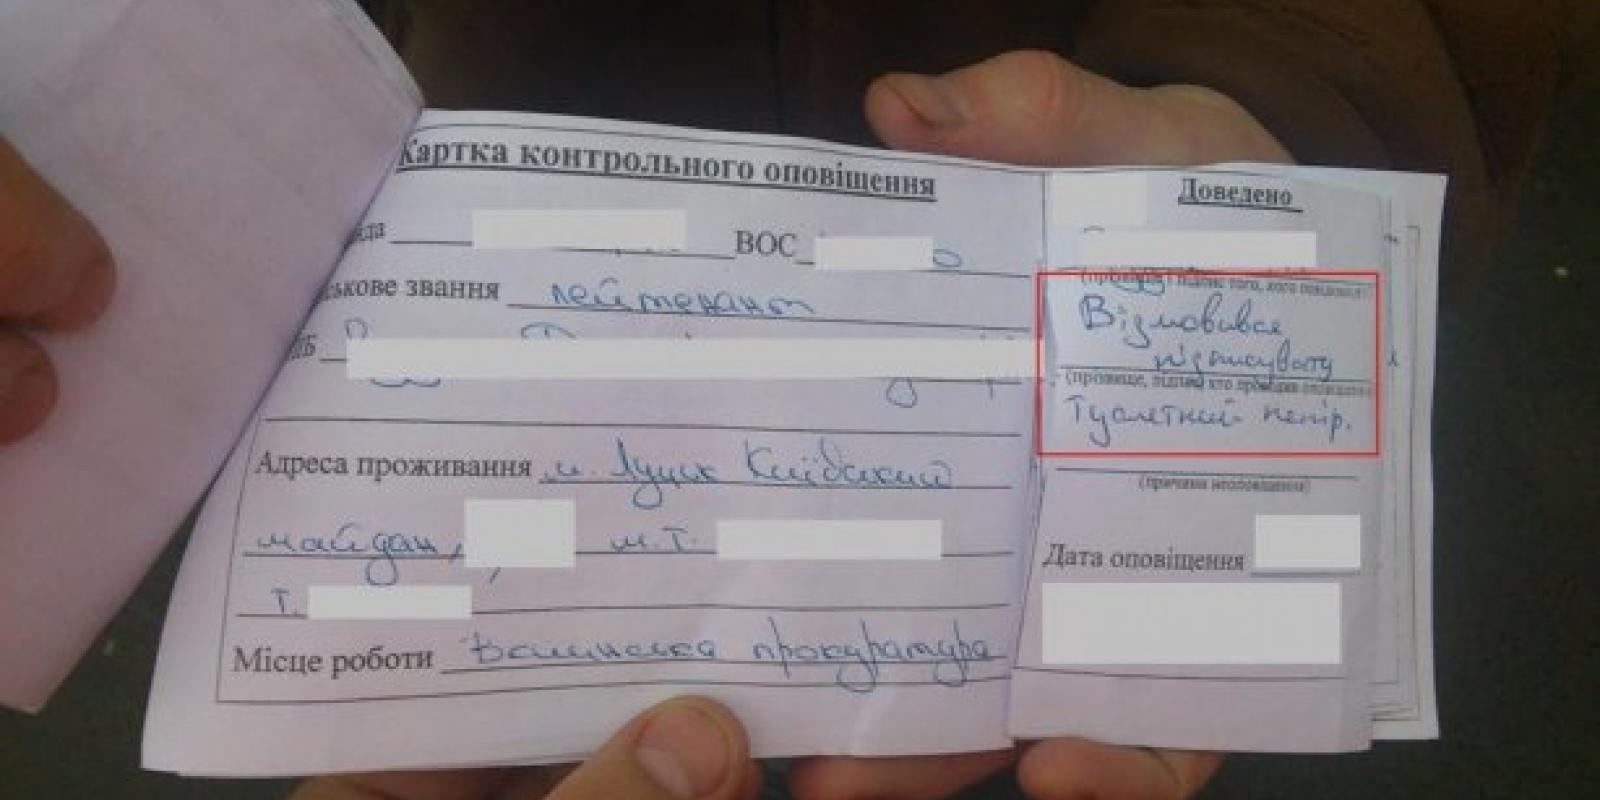 Картка контрольного оповіщення
ВОС
ькове звання лейтенант
ІБ
Адреса проживання м. Луцьк Київський
майдан, м.т.
т.
Місце роботи Волинська прокуратура
Доведено
підпис того, кого
Відмовився
підписувати
(прізвище, підпис хто проводив
Туалетний папір.
(причини неоповіщення)
Дата оповіщення